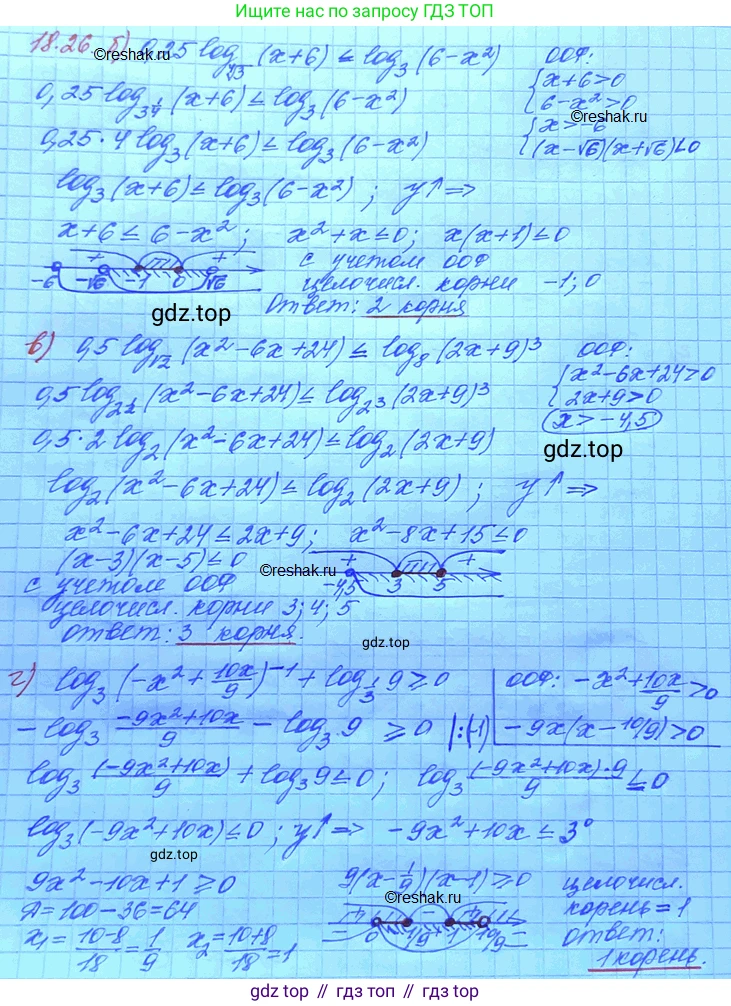 Ищите нас по запросу ГДЗ ТОП
18.26. б) 0,25 log_∜3 (x+6) ≤ log₃(6-x²)
ООФ:
{x+6>0
{6-x²>0
0,25 log_3^¼ (x+6) ≤ log₃(6-x²)
©reshak.ru
{x>-6
{(x-√6)(x+√6)<0
0,25·4 log₃(x+6) ≤ log₃(6-x²)
log₃(x+6) ≤ log₃(6-x²) ; y↑ ⇒
x+6 ≤ 6-x² ; x²+x≤0; x(x+1)≤0
+ +
-6 -√6 -1 0 √6
с учетом ООФ
целочисл. корни -1; 0
Ответ: 2 корня
gdz.top
в) 0,5 log_√2 (x²-6x+24) ≤ log₈(2x+9)³
ООФ:
{x²-6x+24>0
{2x+9>0
x>-4,5
0,5 log_2^½ (x²-6x+24) ≤ log_2³ (2x+9)³
0,5·2 log₂(x²-6x+24) ≤ log₂(2x+9)
gdz.top
log₂(x²-6x+24) ≤ log₂(2x+9) ; y↑ ⇒
x²-6x+24 ≤ 2x+9; x²-8x+15≤0
(x-3)(x-5)≤0
©reshak.ru
+ +
-4,5 3 5
с учетом ООФ
целочисл. корни 3; 4; 5
ответ: 3 корня.
gdz.top
г) log₃(-x²+10x/9)⁻¹ + log_⅓ 9 ≥ 0
ООФ: -x²+10x/9>0
-9x(x-10/9)>0
-log₃ (-9x²+10x)/9 - log₃ 9 ≥ 0 |:(-1)
log₃ (-9x²+10x)/9 + log₃9≤0; log₃ (-9x²+10x)·9/9 ≤0
log₃(-9x²+10x)≤0; y↑⇒ -9x²+10x ≤ 3⁰
gdz.top
9x²-10x+1≥0
9(x-1/9)(x-1)≥0
Д=100-36=64
x₁= (10-8)/18 = 1/9 x₂= (10+8)/18 = 1
©reshak.ru
0 1/9 1 10/9
целочисл.
корень=1
ответ:
1 корень.
gdz.top // гдз.топ // гдз.top